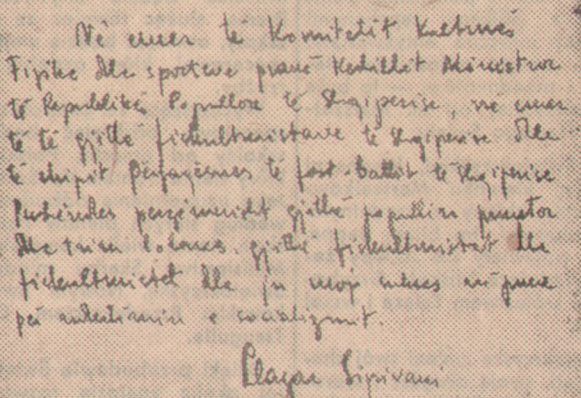 Në emer të Komitetit Kulturës
Fizike dhe sporteve pranë Këshillit Ministror
të Republikës Popullore të Shqiperise, në emer
të të gjithë fiskulturistave të Shqiperise dhe
të ekipit Përfaqësues të foot-ballit të Shqiperise
Përshëndes përzemërsisht gjithë popullin
dhe gjithë fiskulturistët dhe
fiskulturistet dhe ju uroj sukses në punë
për ndertimin e socializmit.